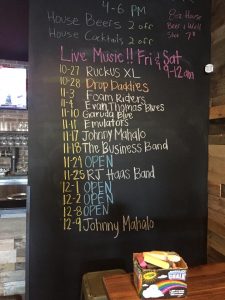 4-6 PM
House Beers 2 off
House Cocktails 2 off
Live Music!! Fri & Sat
9-12am
10-27 Ruckus XL
10-28 Drop Daddies
11-3 Foam Riders
11-4 Evan Thomas Blues
11-10 Garuda Blue
11-11 Emulators
11-17 Johnny Mahalo
11-18 The Business Band
11-24 OPEN
11-25 RJ Haas Band
12-1 OPEN
12-2 OPEN
12-8 OPEN
12-9 Johnny Mahalo